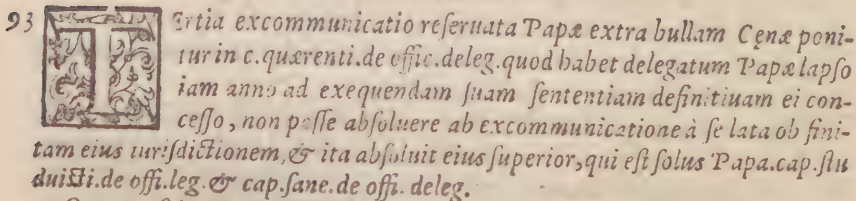 93 TErtia excommunicatio reſeruata Papæ extra bullam Cęnæ poni-
tur in c. quærenti. de offic. deleg. quod habet delegatum Papæ lapſo
iam anno ad exequendam ſuam ſententiam definitiuam ei con-
ceſſo, non poſſe abſoluere ab excommunicatione à ſe lata ob fini-
tam eius iuriſdictionem, & ita abſoluit eius ſuperior, qui eſt ſolus Papa. cap. ſtu
duiſti. de offi. leg. & cap. ſane. de offi. deleg.